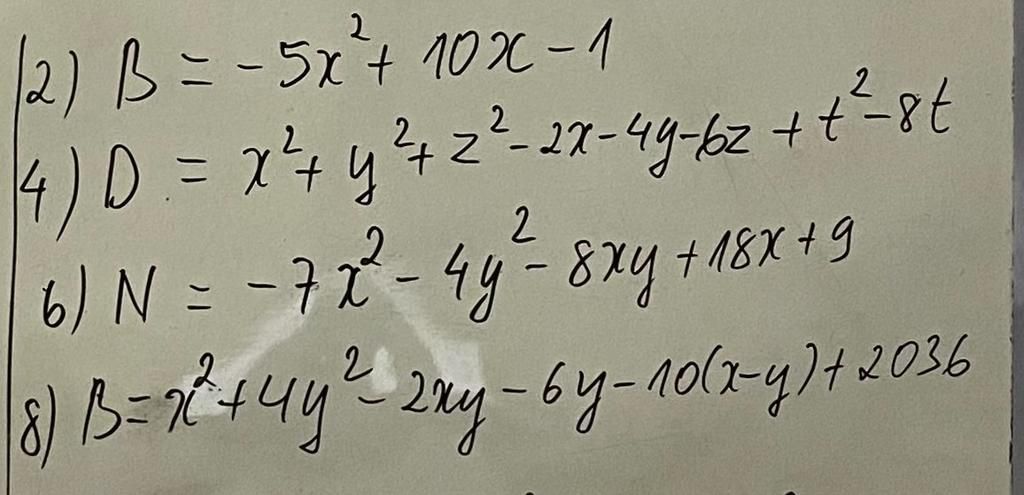 2) B = -5x² + 10x - 1
4) D = x² + y² + z² - 2x - 4y - 6z + t² - 8t
6) N = -7x² - 4y² - 8xy + 18x + 9
8) B = x² + 4y² - 2xy - 6y - 10(x-y) + 2036